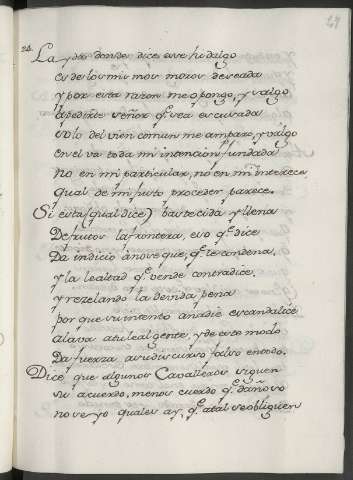 29
24.
La yda donde dice este hidalgo
es de los mismos moros deseada
y por esta razon me opongo, y valgo
a pedirte señor q.e sea escusada
solo del vien comun me amparo, y salgo
en el va toda mi intencion fundada
no en mi particular, no en mi interece
qual de mi justo proceder parece.
Si esta (qual dice) bastecida y llena
De frutos la frontera, eso q.e dice
Da indicio á nove que, q.e te condena,
y la lealtad q.e vende contradice.
y rezelando la devida pena
por que su intento añadie escandalice
alava a tu leal gente, y de este modo
Da fuerza a su discurso falso en todo.
Dice que algunos Cavalleros siguen
su acuerdo, menos cuerdo q.e dañoso
no veo yo quales ay, q.e a tal se obliguen